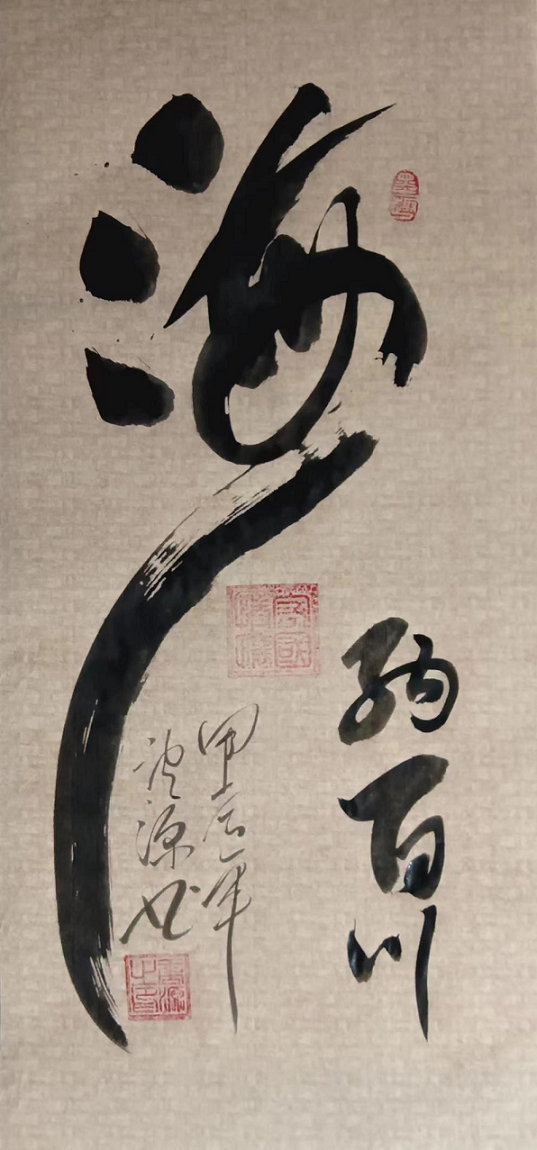 海
纳百川
甲辰年
源书